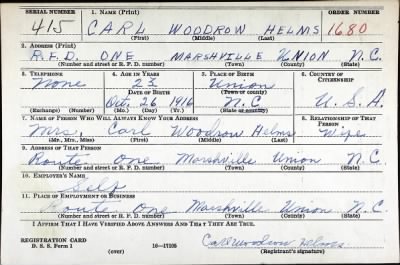 SERIAL NUMBER 1. NAME (Print) ORDER NUMBER
415 CARL WOODROW HELMS 1680
(First) (Middle) (Last)
2. ADDRESS (Print)
R.F.D. ONE MARSHVILLE UNION N.C.
(Number and street or R. F. D. number) (Town) (County) (State)
3. TELEPHONE 4. AGE IN YEARS 5. PLACE OF BIRTH 6. COUNTRY OF CITIZENSHIP
None 23 Union
DATE OF BIRTH (Town or county)
Oct. 26 1916 N.C. U.S.A.
(Exchange) (Number) (Mo.) (Day) (Yr.) (State or country)
7. NAME OF PERSON WHO WILL ALWAYS KNOW YOUR ADDRESS 8. RELATIONSHIP OF THAT PERSON
Mrs. Carl Woodrow Helms Wife
(Mr., Mrs., Miss) (First) (Middle) (Last)
9. ADDRESS OF THAT PERSON
Route One Marshville Union N.C.
(Number and street or R. F. D. number) (Town) (County) (State)
10. EMPLOYER'S NAME
Self
11. PLACE OF EMPLOYMENT OR BUSINESS
Route One Marshville Union N.C.
(Number and street or R. F. D. number) (Town) (County) (State)
I AFFIRM THAT I HAVE VERIFIED ABOVE ANSWERS AND THAT THEY ARE TRUE.
REGISTRATION CARD
D. S. S. Form 1 16-17105 Carl Woodrow Helms
(over) (Registrant's signature)